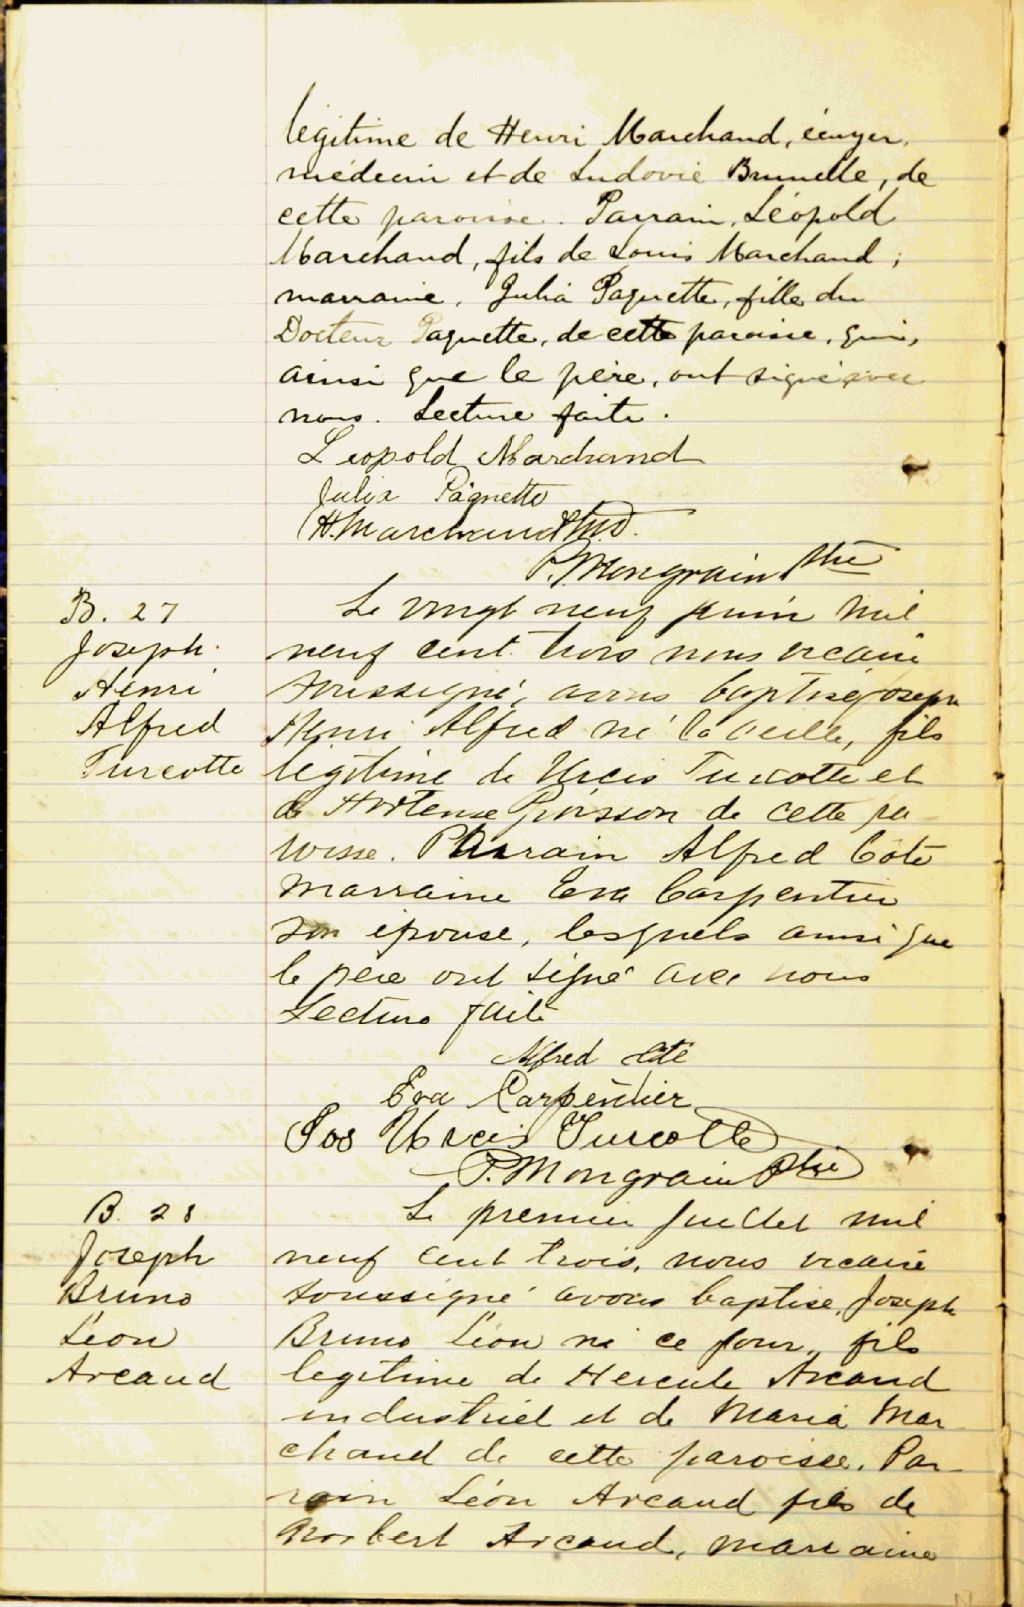 légitime de Henri Marchand, écuyer,
médecin et de Ludovic Brunelle, de
cette paroisse. Parrain, Léopold
Marchand, fils de Louis Marchand ;
marraine, Julia Paquette, fille du
Docteur Paquette, de cette paroisse, qui,
ainsi que le père, ont signé avec
nous. Lecture faite.
Leopold Marchand
Julia Paquette
H. Marchand M.D.
P. Mongrain Ptre
B. 27
Joseph
Henri
Alfred
Turcotte
Le vingt neuf juin mil
neuf cent trois nous vicaire
soussigné, avons baptisé Joseph
Henri Alfred né la veille, fils
légitime de Urcis Turcotte et
de Hortense Poisson de cette pa
roisse. Parrain Alfred Coté
marraine Eva Carpentier
son épouse, lesquels ainsi que
le père ont signé avec nous
Lecture faite
Alfred Côté
Eva Carpentier
Jos Urcis Turcotte
P. Mongrain Ptre
B. 28
Joseph
Bruno
Léon
Arcand
Le premier Juillet mil
neuf cent trois, nous vicaire
soussigné avons baptisé, Joseph
Bruno Léon né ce jour, fils
legitime de Hercule Arcand
industriel et de Maria Mar
chand de cette paroisse. Par
rain Léon Arcand fils de
Norbert Arcand, marraine